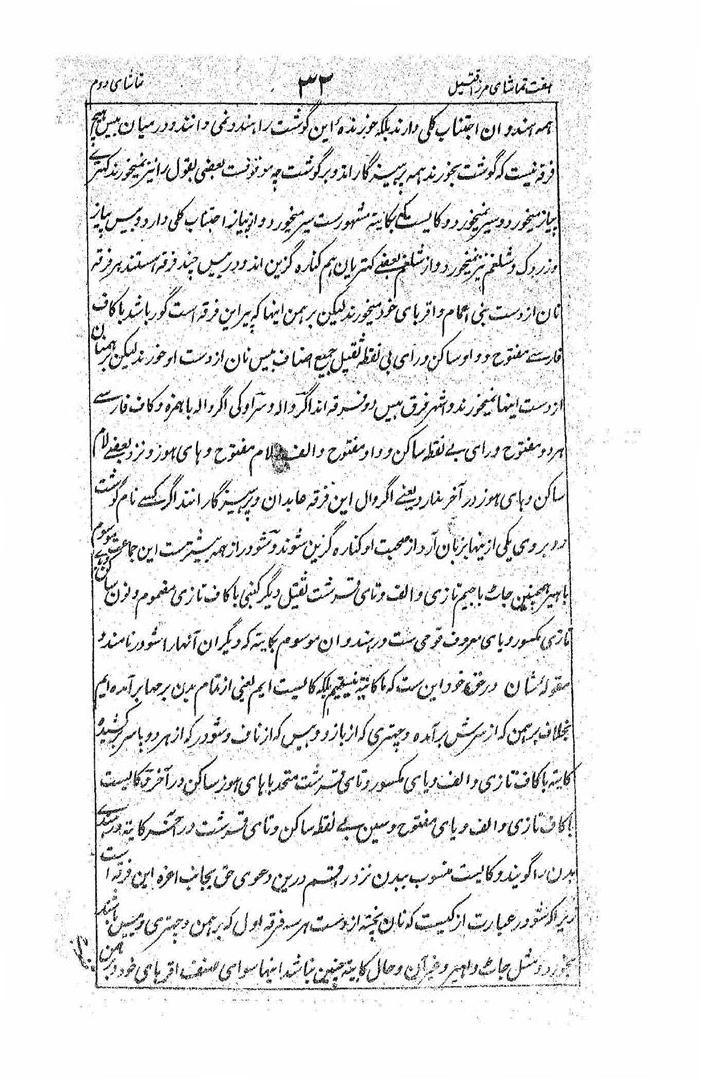 هفت تماشای مرزا قتیل ۳۲ تماشای دوم
همه هندوان اجتناب کلی دارند بلکه خورندهٔ این گوشت را هندو نمی دانند و در میان بیس هیچ
فرقه نیست که گوشت بخورند همه پرهیزگار اند و بر گوشت چه موقوفست بعضی بقول را نیز نمیخورند کهتری
پیاز میخورد و سیر نمیخورد و کایست که بکایته مشهورست سیر میخورد و از پیاز اجتناب کلی دارد و بیس پیاز
و زردک و شلغم نیز نمیخورد و از شلغم بعضے کهتریان هم کناره گزین اند و در بیس چند فرقه هستند هر فرقه
نان از دست بنی اعمام و اقربای خود میخورند لیکن برهمن اینها که پیر این فرقه است گور باشد با کاف
فارسے مفتوح و واو ساکن و رای بی نقطه ثقیل جمیع اصناف بیس نان از دست او خورند لیکن برهمنان
از دست اینها نمیخورند و اشهر فرق بیس دو فرقه اند اگروالہ و سراوکی اگروالہ با همزه و کاف فارسے
هر دو مفتوح و رای بے نقطه ساکن و واو مفتوح و الف و لام مفتوح و های هوز و نزد بعضے لام
ساکن و های هوز در آخر ندارد یعنے اگروال این فرقه عابدان و پرهیزگار انند اگر کسے نام گوشت
رو بروی یکی از ینها بزبان آرد از صحبت او کناره گزین میشوند و شودر از همه بیشترست این جماعت موسوم
باهیر همچنین جاٹ با جیم تازی و الف و تای قرشت ثقیل دیگر کنبی با کاف تازی مضموم و نون ساکن و بای
تازی مکسور و یای معروف قومی ست در هندوان موسوم بکایته که دیگران آنها را شودر نامند و
مقوله ایشان در حق خود این ست که ما کایته نیستیم بلکه کایست ایم یعنی از تمام بدن برهما برآمده ایم
بخلاف برهمن که از سرش برآمده و چهتری که از بازو و بیس که از ناف و شودر که از هر دو پا سر کشیده
کایته با کاف تازی و الف و یای مکسور و تای قرشت متحد با های هوز ساکن در آخر و کایست
با کاف تازی و الف و یای مفتوح و سین بے نقطه ساکن و تای قرشت در آخر کایته در هندی
بدن را گویند و کایست منسوب ببدن نزد راقم درین دعوی حق بجانب اعزه این فرقه است
زیرا که شودر عبارت از کیست که نان پخته از دست هر سه فرقه اول که برهمن و چهتری و بیس باشند
بخورد مثل جاٹ و اهیر و غیر آن و حال کایته چنین نباشد اینها سوای صنف اقربای خود و برهمن